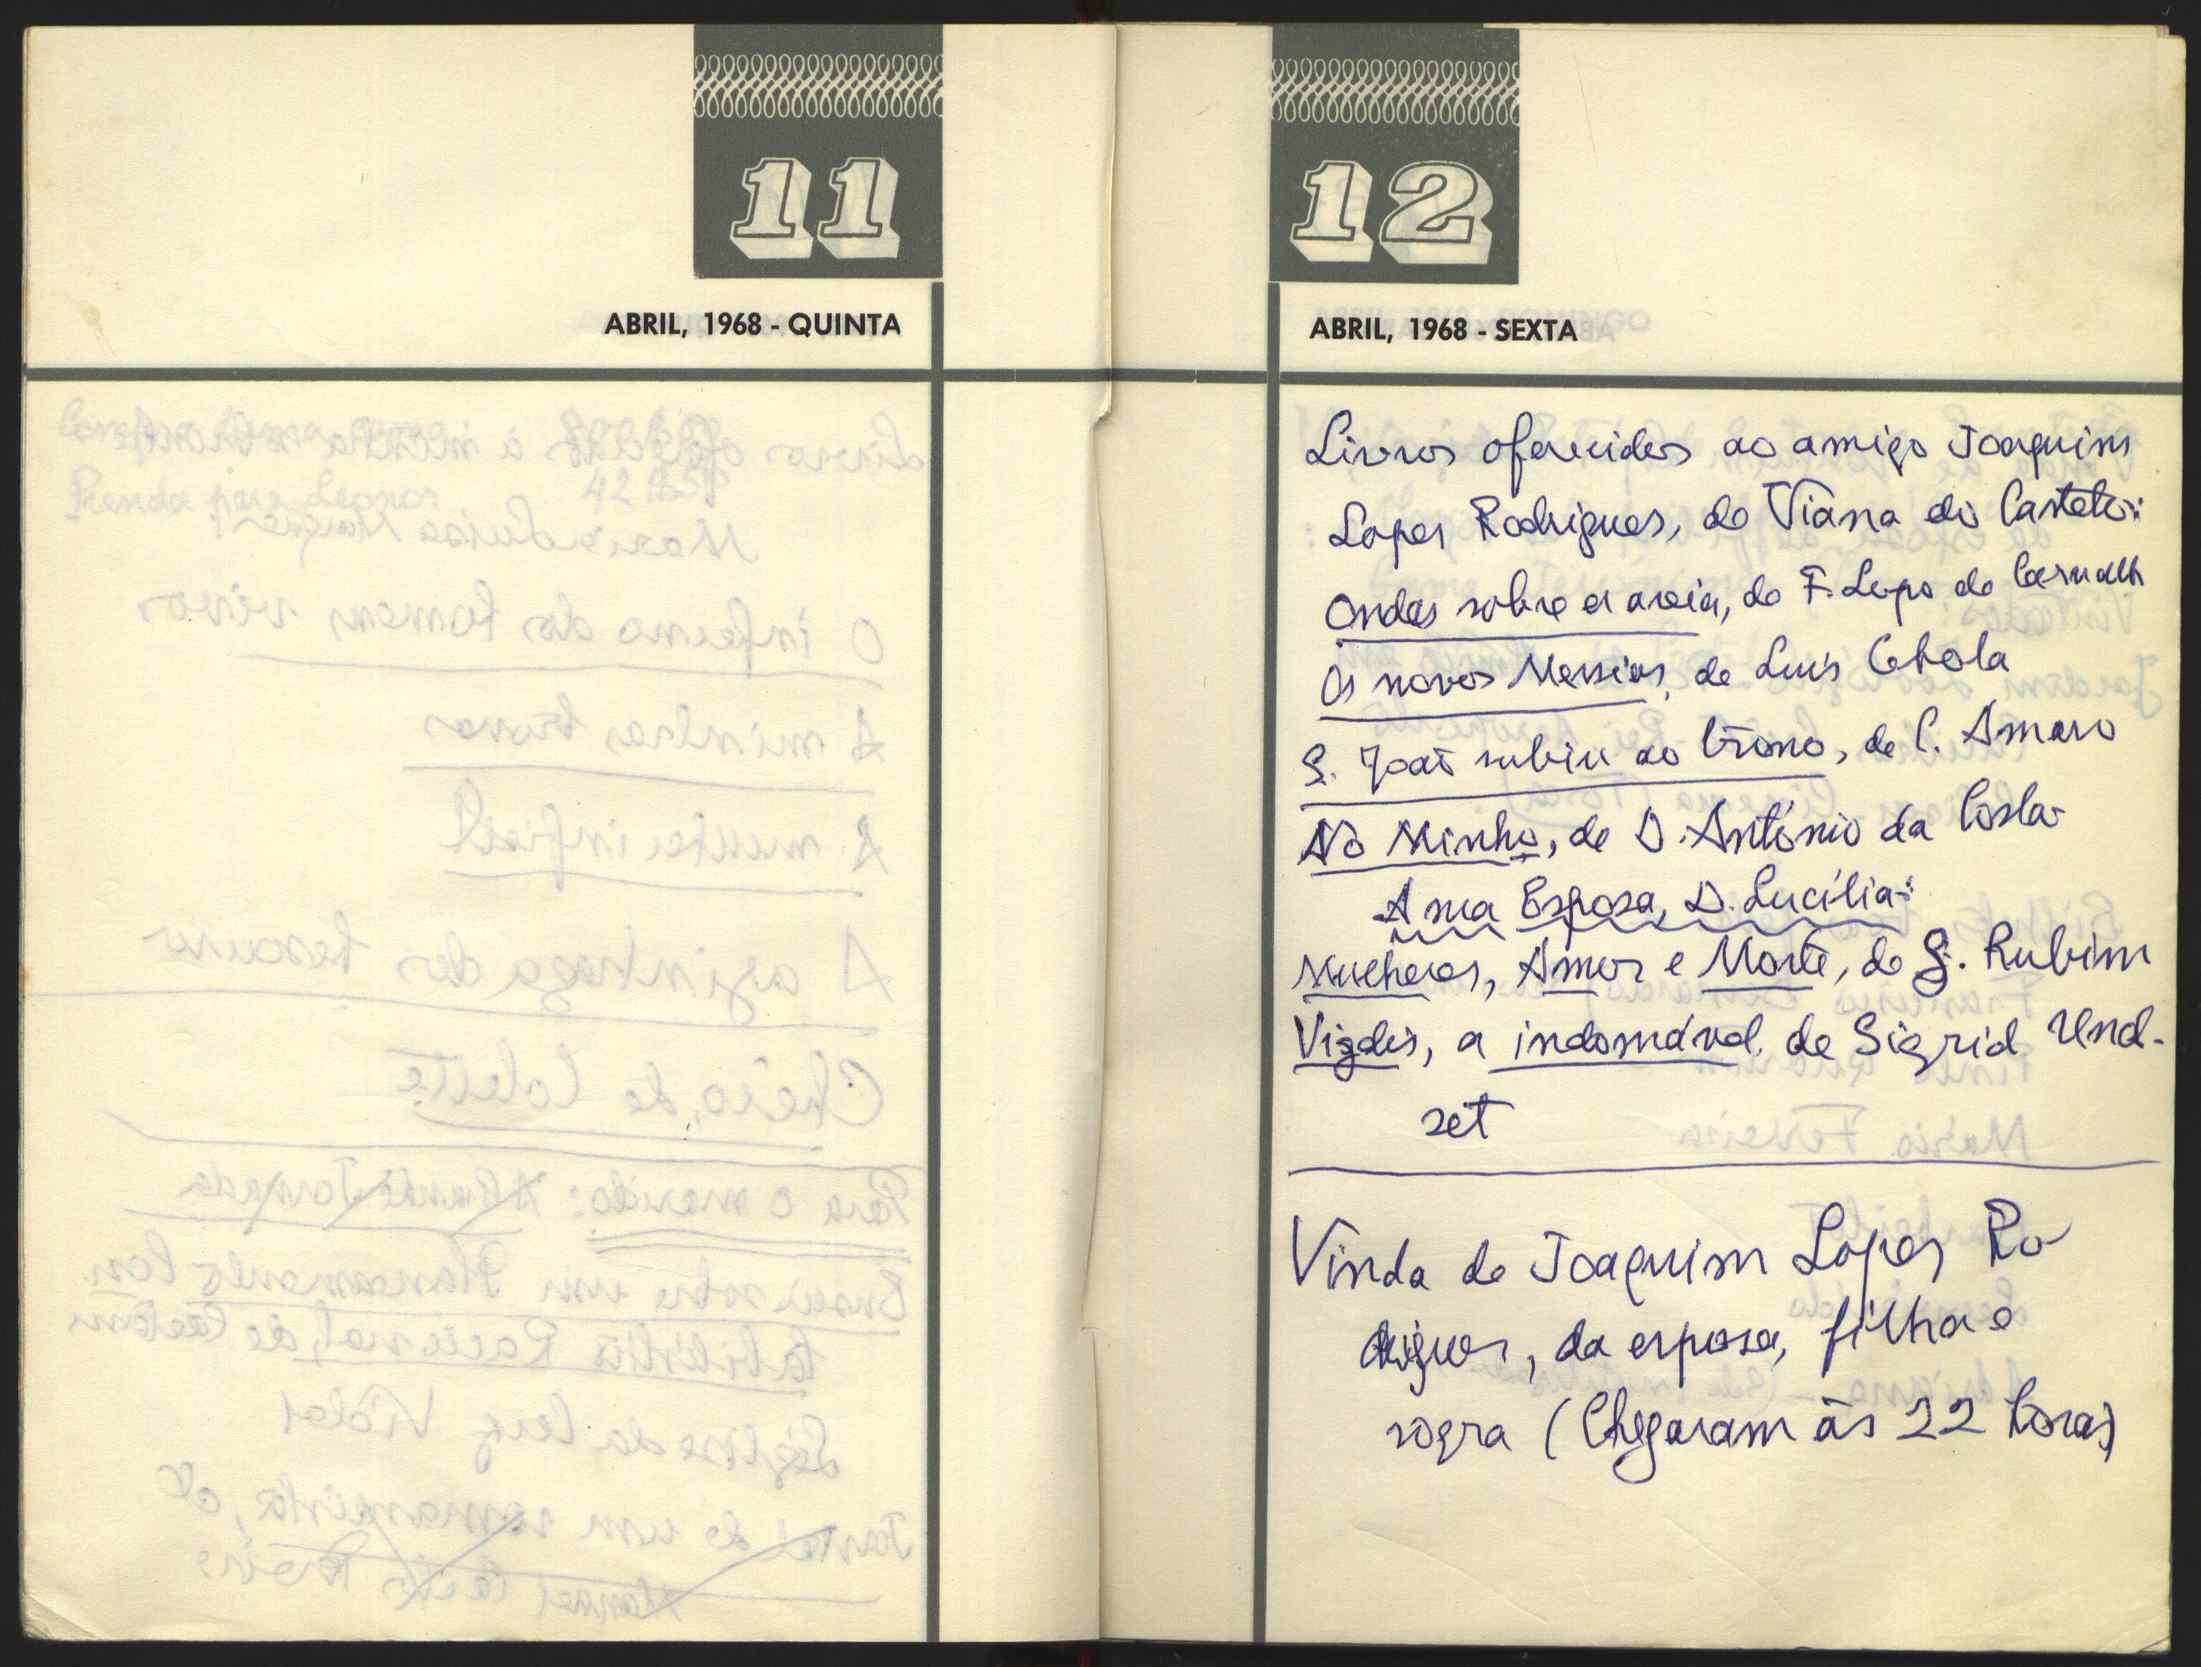 11
ABRIL, 1968 - QUINTA
12
ABRIL, 1968 - SEXTA
Livros oferecidos ao amigo Joaquim
Lopes Rodrigues, de Viana do Castelo:
Ondas sobre a areia, de F. Lopo de Carvalh
Os novos Messias, de Luís Cebola
S. João subiu ao trono, de C. Amaro
No Minho, de D. António da Costa
A sua Esposa, D. Lucília:
Mulheres, Amor e Morte, de G. Rubim
Vigdis, a indomável, de Sigrid Und-
set
Vinda de Joaquim Lopes Ro
drigues, da esposa, filha e
sogra (Chegaram às 22 horas)